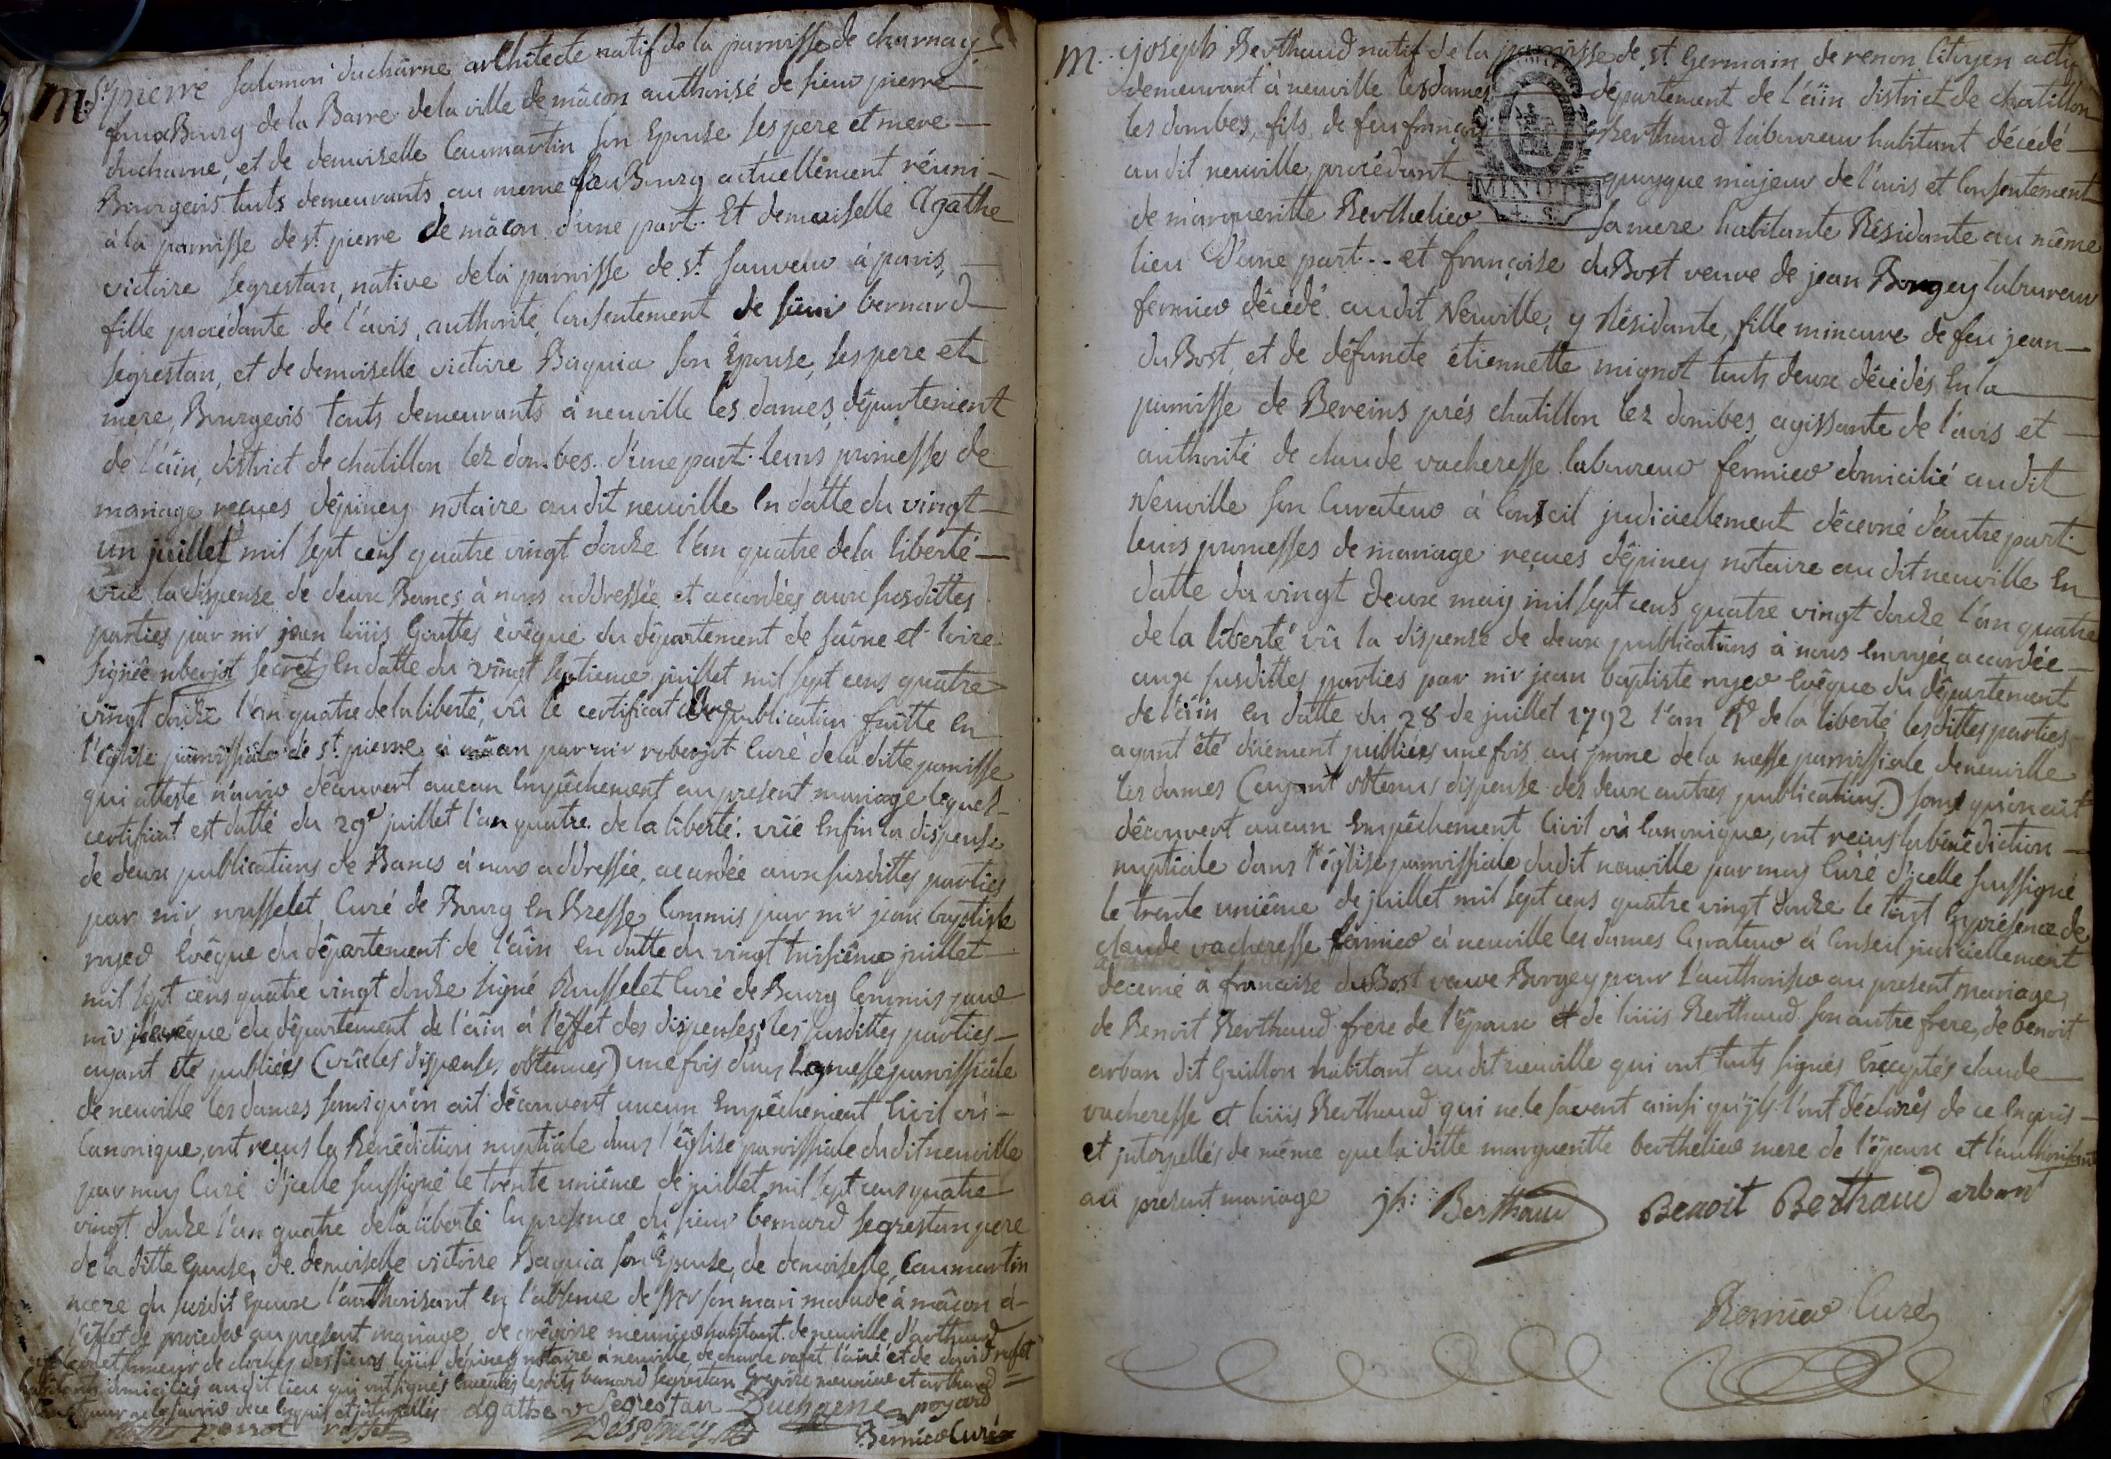 M. Sr pierre salomon ducharne architecte natif de la parroisse de charnay
faux Bourg de la Barre de la ville de mâcon authorisé de sieur pierre
ducharne, et de demoiselle Caumartin son Epouse ses pere et mere
Bourgeois touts demeurants au meme faux Bourg actuellement réuni
à la parroisse de st. pierre de mâcon d'une part. Et demoiselle Agathe
victoire segrestan, native de la parroisse de st. sauveur à paris,
fille procédante de l'avis, authorité, consentement de sieur bernard
segrestan, et de demoiselle victoire Baquia son Epouse, ses pere et
mere, Bourgeois touts demeurants à neuville les dames, département
de l'ain, district de chatillon lez dombes. d'une part. leurs promesses de
mariage reçues dépiney notaire audit neuville En datte du vingt
un juillet mil sept cens quatre vingt douze l'an quatre de la liberté
vue la dispense de deux Bancs à nous addressée et accordées aux susdittes
parties par mr jean loüis Gouttes évêque du département de saône et loire
signée roberjot secret En datte du vingt septieme juillet mil sept cens quatre
vingt douze l'an quatre de la liberté, vû le certificat de publication faitte en
l'église parroissiale de st. pierre à mâcon par mr roberjot Curé de la ditte parroisse
qui atteste n'avoir découvert aucun Empêchement au present mariage lequel
certificat est datté du 29e juillet l'an quatre de la liberté. vüe Enfin la dispense
de deux publications de Bancs à nous addressée, accordée aux susdittes parties
par mr rousselet Curé de Bourg En Bresse Commis par mr jean baptiste
royer Evêque du département de l'ain en datte du vingt troisiême juillet
mil sept cens quatre vingt douze signé Rousselet Curé de Bourg Commis par
mr l'evêque du département de l'ain à l'effet des dispenses; les susdittes parties
ayant été publiées (vû les dispenses obtenues) une fois dans la messe parroissiale
de neuville les dames sans qu'on ait découvert aucun Empêchement Civil où
Canonique, ont reçus la Bénédiction nuptiale dans l'église parroissiale dudit neuville
par moy Curé d'jcelle soussigné le trente uniême de juillet mil sept cens quatre
vingt douze l'an quatre de la liberté En presence du sieur bernard segrestan pere
de la ditte Epouse, de demoiselle victoire Baquia son Epouse, de demoiselle Caumartin
mere du susdit Epoux l'authorisant en l'absence de son mari malade à mâcon à
l'effet de proceder au present mariage, de grégoire meunier habitant de neuville d'arthaud
et sonneur de cloches des sieurs loüis dépiney notaire à neuville, de charle rafet l'ainé et de david rafet
habitants domiciliés audit lieu qui ont signés Exceptés lesdits bernard segrestan grégoire meunier et arthaud
pour ne le savoir de ce Enquis et jnterpellés agathe v segrestan Ducharne poyard
Despiney Bernier Curé
M. joseph Berthaud natif de la parroisse de st. Germain de renon Citoyen actif
demeurant à neuville les dames département de l'äin district de chatillon
les dombes, fils de feu françois Berthaud laboureur habitant décédé
audit neuville procédant quoyque majeur de l'avis et Consentement
de margueritte Berthelier sa mere habitante Résidante au même
lieu d'une part... et françoise duBost veuve de jean Borgey laboureur
fermier décédé audit Neuville, y Résidante, fille mineure de feu jean
duBost, et de défuncte étiennette mignot touts deux décédés En la
parroisse de Bereins prés chatillon lez dombes, agissante de l'avis et
authorité de claude vacheresse laboureur fermier domicilié audit
Neuville son Curateur à Conseil judiciellement décerné d'autre part.
leurs promesses de mariage reçues dépiney notaire audit neuville En
datte du vingt deux may mil sept cens quatre vingt douze l'an quatre
de la liberté vû la dispense de deux publications à nous Envoyée accordée
aux susdittes parties par mr jean baptiste royer Evêque du département
de l'äin en datte du 28 de juillet 1792 l'an 4e de la liberté, lesdittes parties
ayant été düement publiées une fois au prone de la messe parroissiale de neuville
les dames (ayant obtenus dispense des deux autres publications.) sans qu'on ait
découvert aucun Empêchement Civil où Canonique, ont reçus la bénédiction
nuptiale dans l'église parroissiale dudit neuville par moy Curé d'jcelle soussigné
le trente uniême de juillet mil sept cens quatre vingt douze le tout En présence de
claude vacheresse fermier à neuville les dames Curateur à Conseil judiciellement
décerné à francoise duBost veuve Borgey pour l'authoriser au present mariage
de Benoit Berthaud frere de l'époux et de loüis Berthaud son autre frere, de benoit
arban dit Guillon habitant audit neuville qui ont touts signés Exceptés claude
vacheresse et loüis Berthaud qui ne le savent ainsi qu'jls l'ont déclarés de ce Enquis
et jnterpellés de même que la ditte margueritte berthelier mere de l'époux et l'authorisant
au present mariage jh: Berthaud Benoit Berthaud arban
Bernier Curé
MINUTE